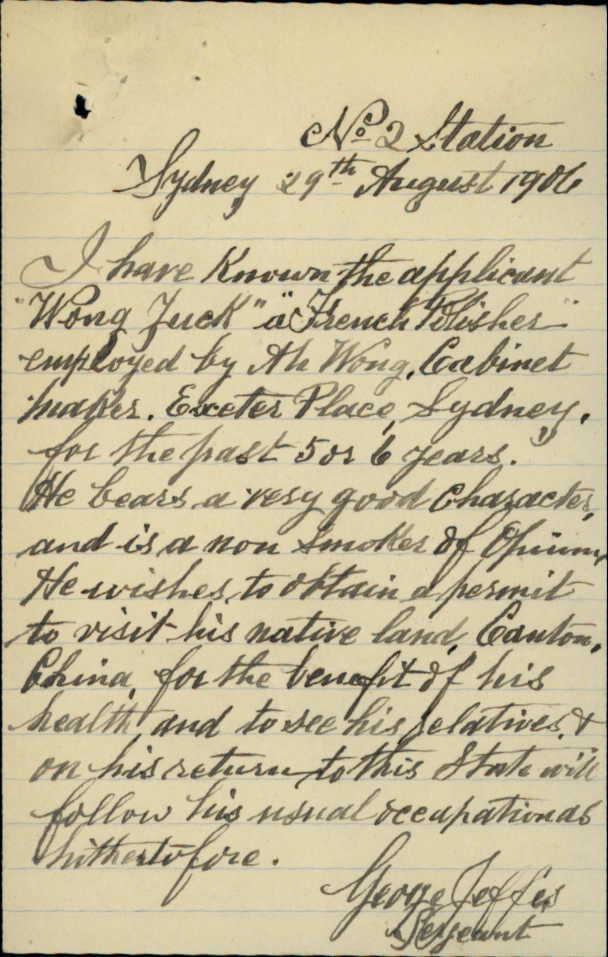 No. 2 Station
Sydney 29th August 1906
I have known the applicant
"Wong Juck" a "French Polisher"
employed by Ah Wong, Cabinet
maker. Exeter Place, Sydney,
for the past 5 or 6 years.
He bears a very good character,
and is a non smoker of Opium,
He wishes to obtain a permit
to visit his native land, Canton,
China, for the benefit of his
health, and to see his relatives, &
on his return to this State will
follow his usual occupation as
hithertofore.
George Jeffes
Sergeant